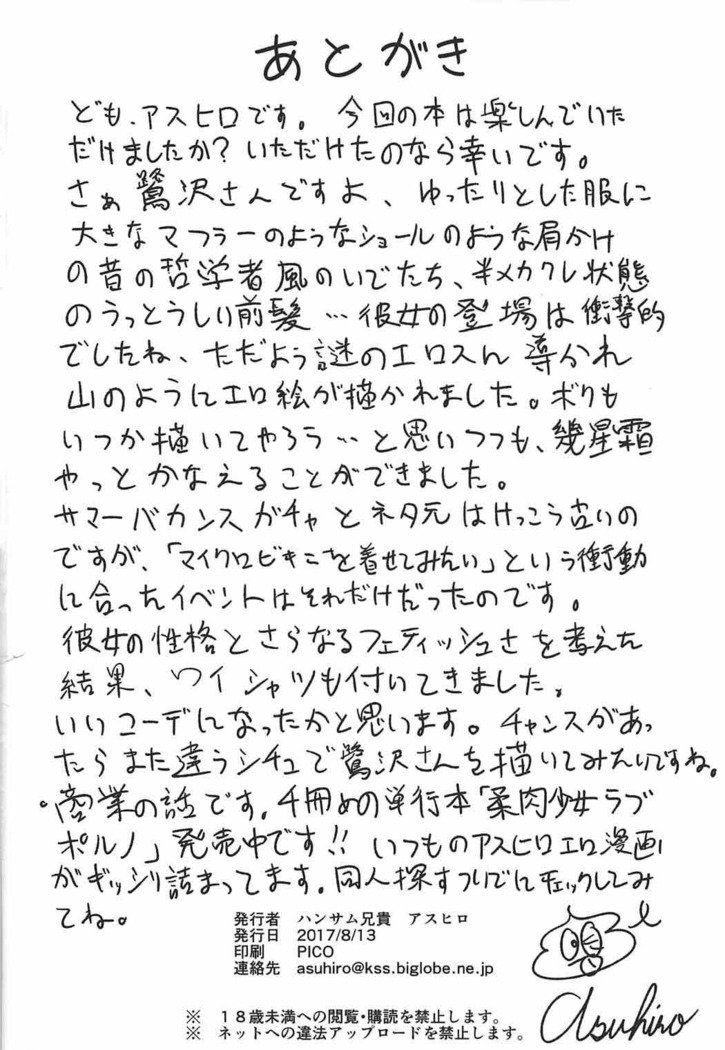 あとがき
ども、アスヒロです。今回の本は楽しんでいた
だけましたか?いただけたのなら幸いです。
さぁ鷺沢さんですよ、ゆったりとした服に
大きなマフラーのようなショールのような肩かけ
の昔の哲学者風のいでたち、半メカクレ状態
のうっとうしい前髪…彼女の登場は衝撃的
でしたね、ただよう謎のエロスん導かれ
山のようにエロ絵が描かれました。ボクも
いつか描いてやろう…と思いつつも、幾星霜
やっとかなえることができました。
サマーバカンスガチャとネタ元はけっこう古いの
ですが、「マイクロビキニを着せてみたい」という衝動
に合ったイベントはそれだけだったのです。
彼女の性格とさらなるフェティッシュさを考えた
結果、ワイシャツも付いてきました。
いいコーデになったかと思います。チャンスがあっ
たらまた違うシチュで鷺沢さんを描いてみたいですね。
・商業の話です。4冊めの単行本「柔肉少女ラブ
ポルノ」発売中です!!いつものアスヒロエロ漫画
がギッシリ詰まってます。同人探すついでにチェックしてみ
てね。
発行者 ハンサム兄貴 アスヒロ
発行日 2017/8/13
印刷 PICO
連絡先 asuhiro@kss.biglobe.ne.jp
Asuhiro
※ 18歳未満への閲覧・購読を禁止します。
※ ネットへの違法アップロードを禁止します。